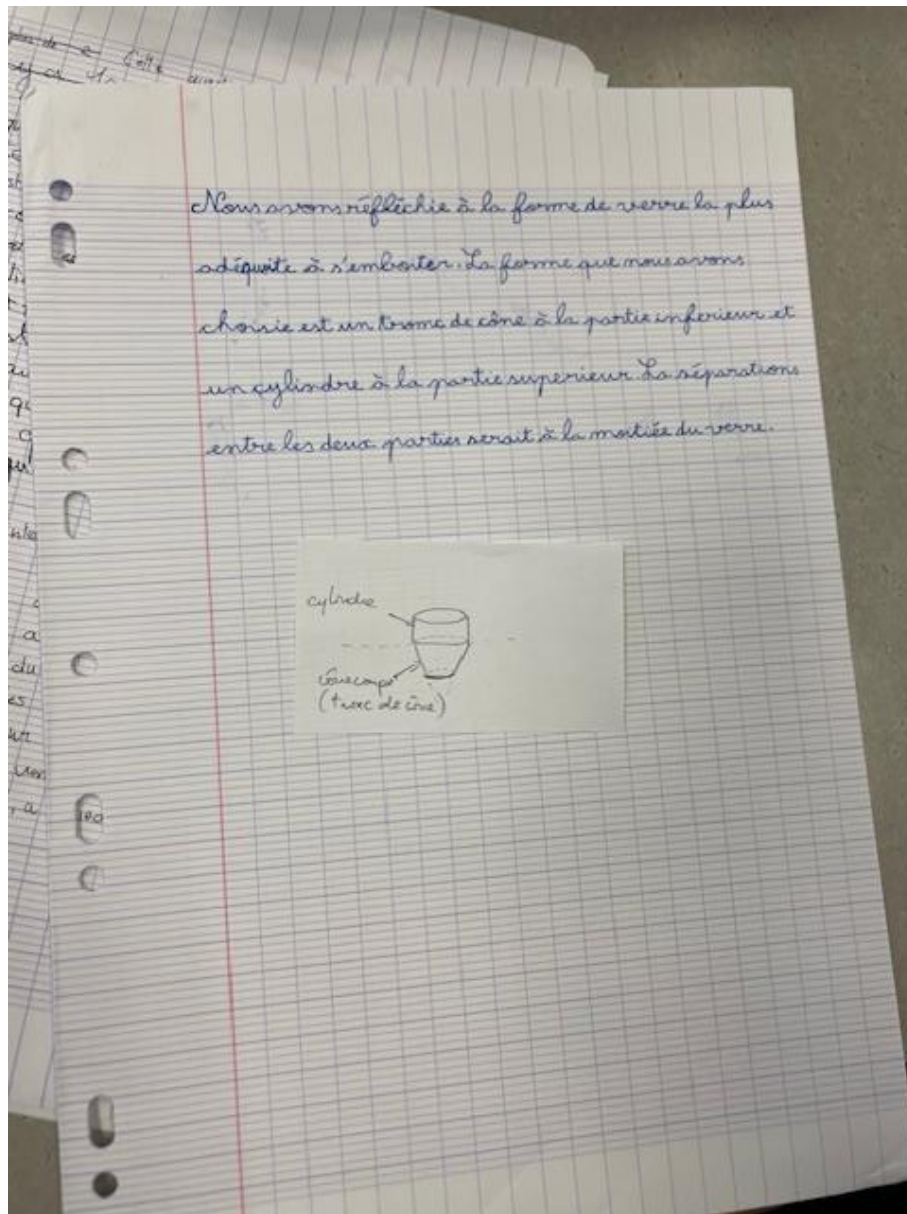 Nous avons réfléchie à la forme de verre la plus
adéquate à s'emboiter. La forme que nous avons
choisie est un trome de cône à la partie inferieur et
un cylindre à la partie superieur. La séparations
entre les deux parties serait à la moitiée du verre.
cylindre
cône coupé
(tronc de cône)